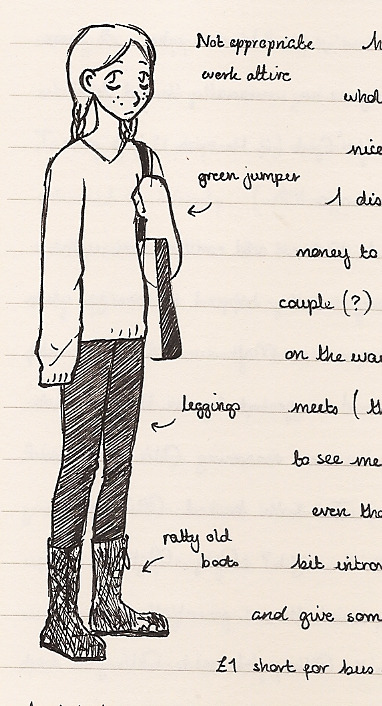 Not appropriate
work attire
green jumper
I dis
nice
money to
couple (?)
on the wa
leggings
meets (
to see me
even tho
ratty old
boots
bit introv
and give som
£1 short for bus